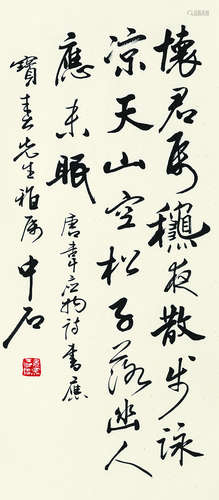 懷君屬穐夜散步詠
涼天山空松子落幽人
應未眠
唐韋应物詩書應
寶春先生雅屬 中石